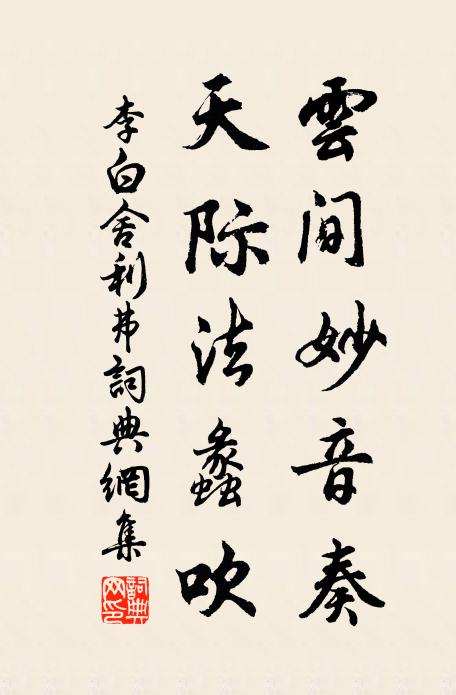 雲间妙音奏
天际法蠡吹
李白舍利弗詞典網集
詞典网印